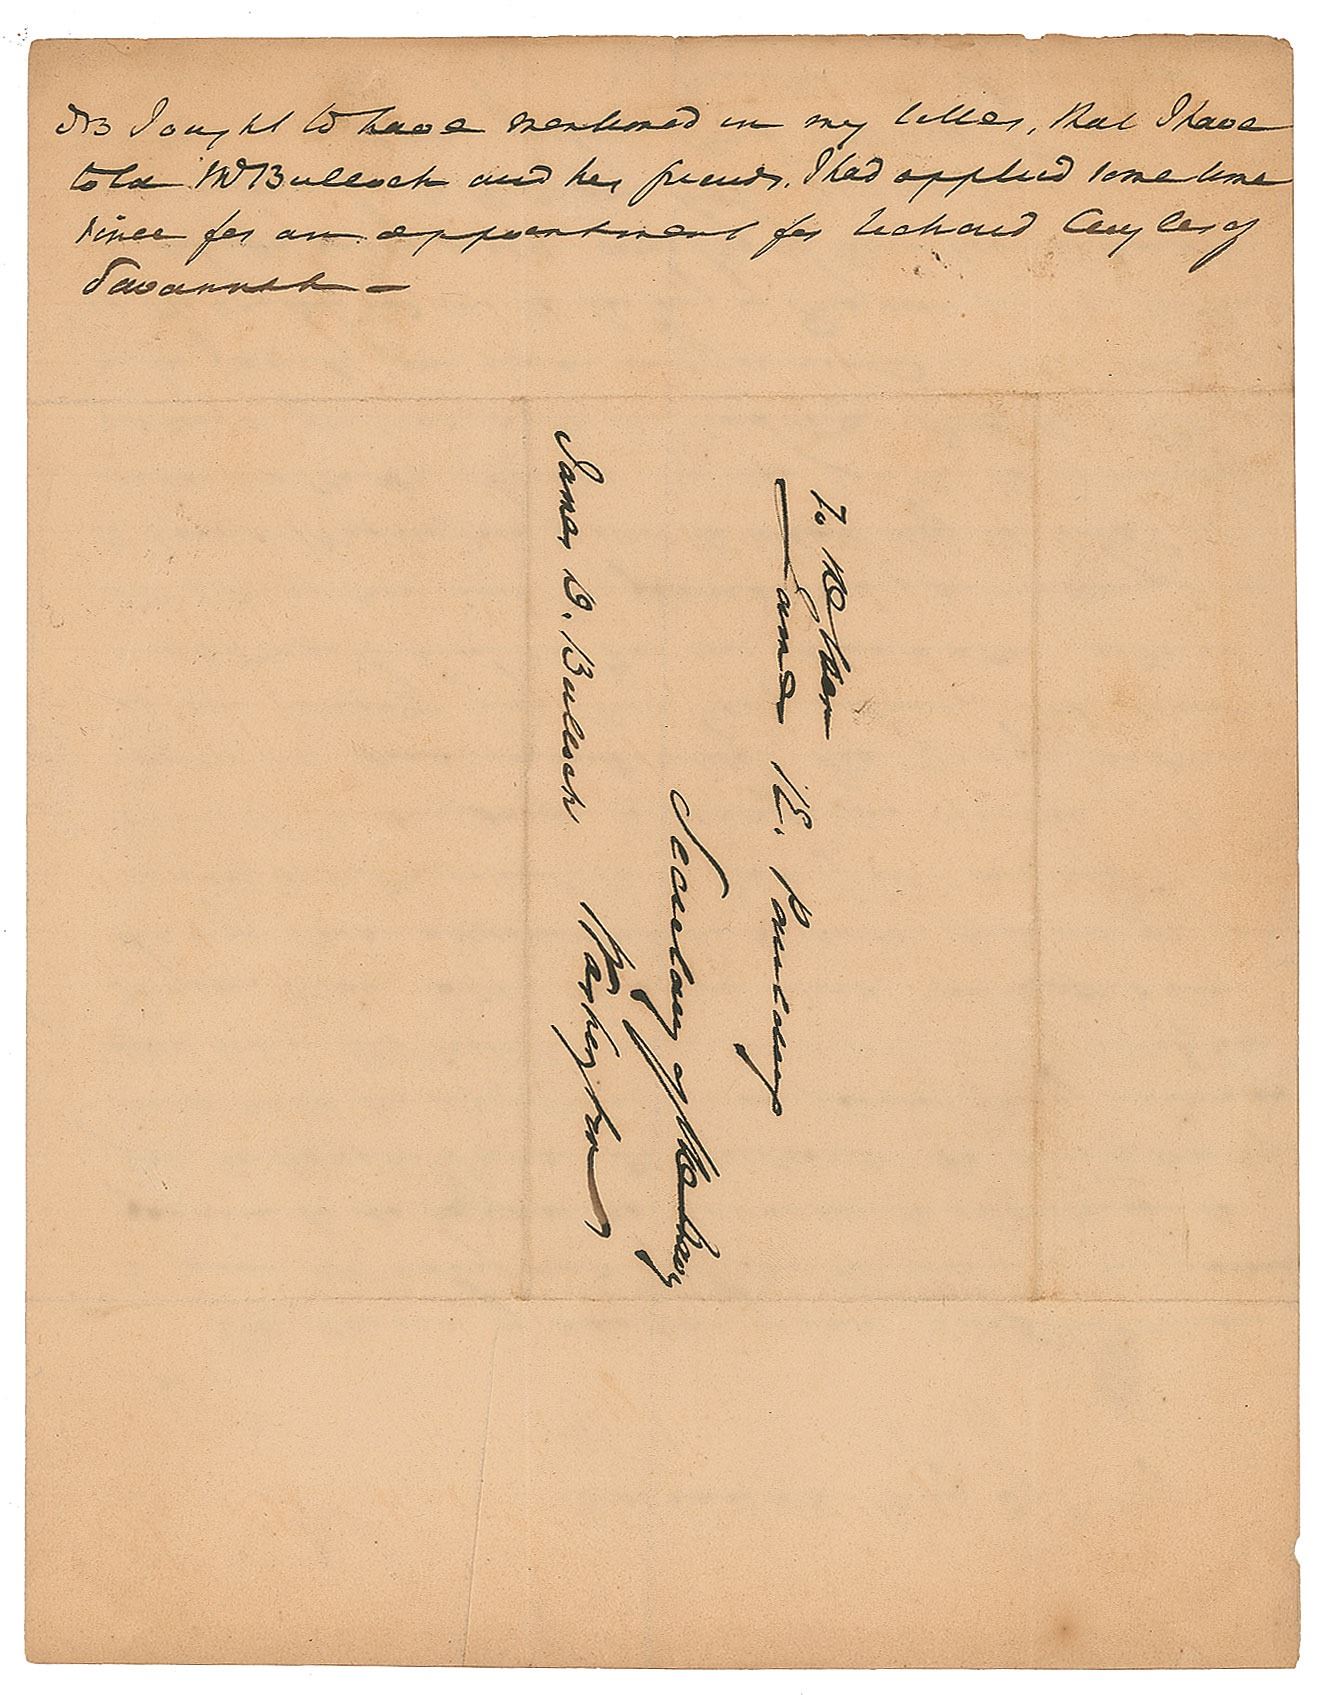 NB I ought to have mentioned in my letter, that I have
told Mr Bulloch and her friends, I had applied some time
since for an appointment for Richard Cuyler of
Savannah —
To the Hon
James K. Paulding
Secretary of the Navy
Washington
James D. Bulloch